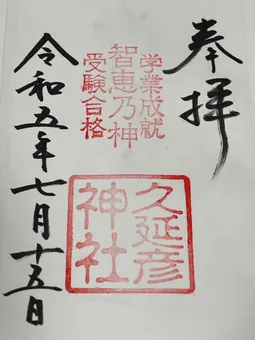 奉拝
学業成就
智恵乃神
受験合格
久延彦
神社
令和五年七月十五日